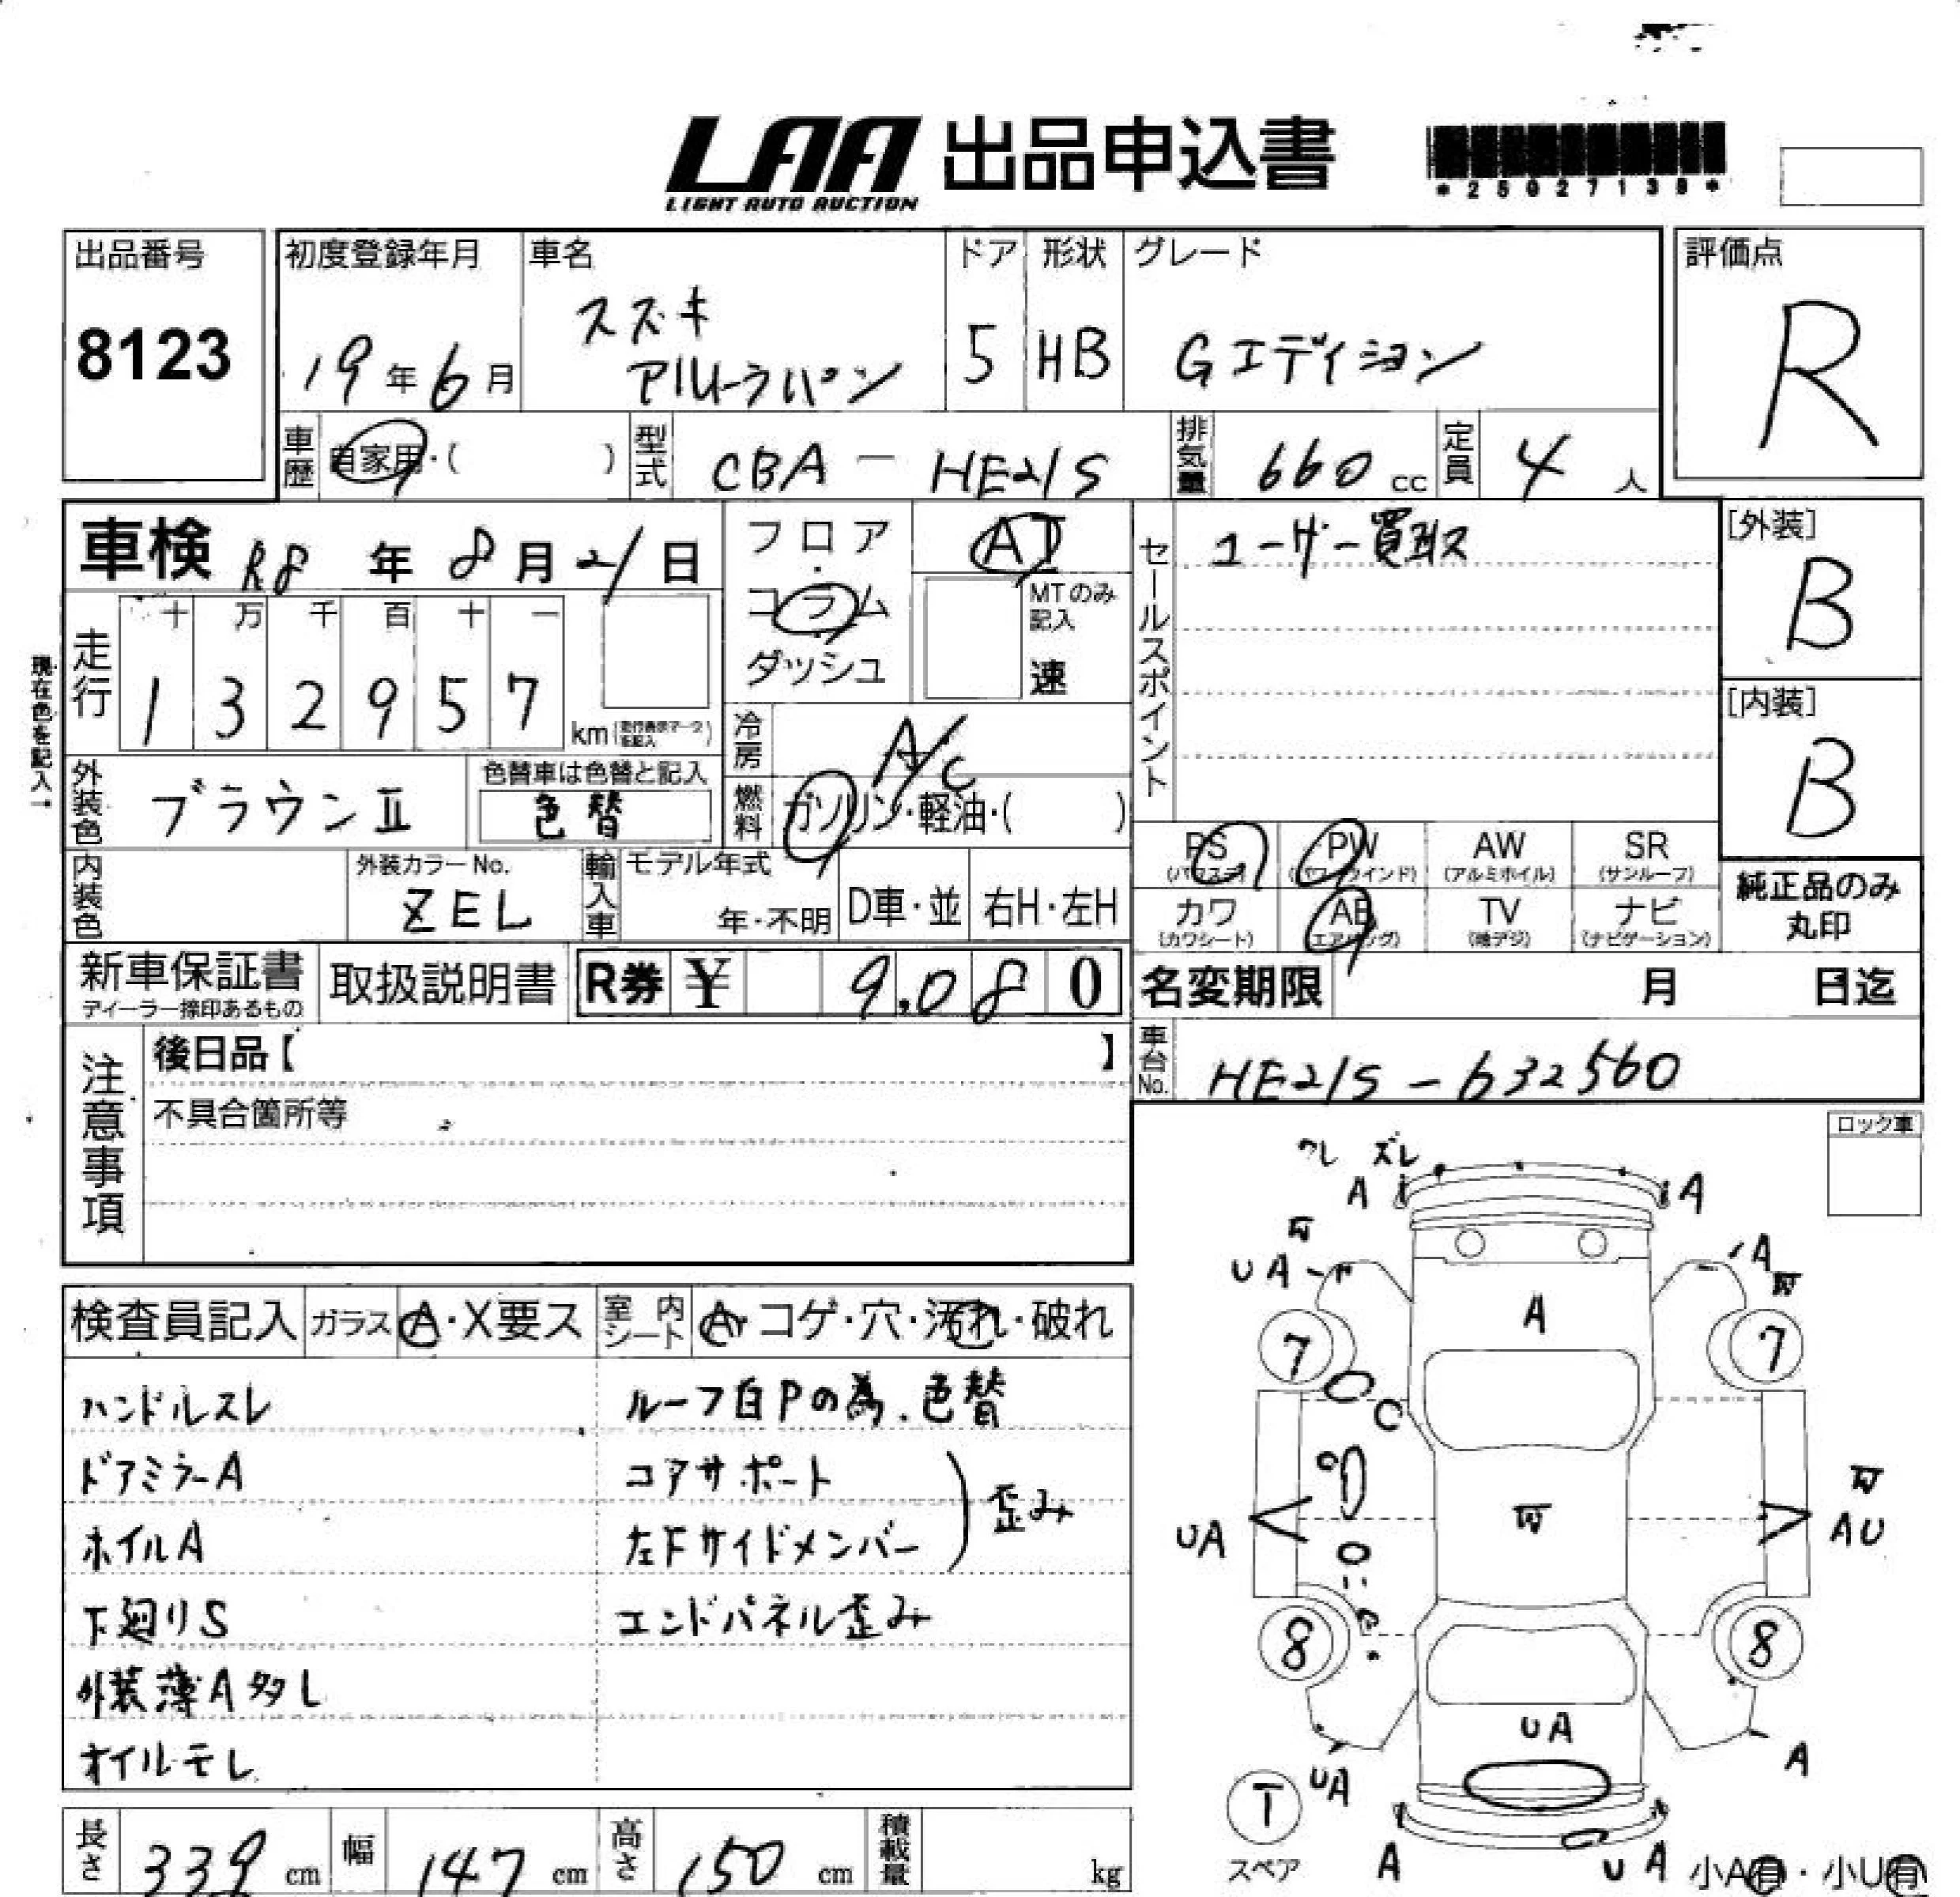 LAA 出品申込書
LIGHT AUTO AUCTION
*25027139*
出品番号 初度登録年月 車名 ドア 形状 グレード 評価点
8123 19年6月 スズキ アルトラパン 5 HB Gエディション R
車歴 自家用・( ) 型式 CBA - HE21S 排気量 660 cc 定員 4 人
車検 R8年8月21日 フロア・コラム・ダッシュ AT
MTのみ記入 速
セールスポイント ユーザー買取ス
[外装] B
[内装] B
現在色を記入→
走行 十 万 千 百 十 一
1 3 2 9 5 7 km
冷房 A/C
外装色 ブラウンⅡ 色替車は色替と記入 色替
燃料 ガソリン・軽油・( )
内装色 外装カラーNo. ZEL 輸入車 モデル年式 年・不明 D車・並 右H・左H
PS(パワステ) PW(パワーウインド) AW(アルミホイル) SR(サンルーフ)
カワ(カワシート) AB(エアバッグ) TV(地デジ) ナビ(ナビゲーション)
純正品のみ丸印
新車保証書 ディーラー捺印あるもの 取扱説明書 R券 ¥ 9,080
名変期限 月 日迄
車台No. HE21S-632560
注意事項 後日品【 】
不具合箇所等
ロック車
検査員記入 ガラス A・X要ス 室内シート A・コゲ・穴・汚れ・破れ
ハンドルスレ ルーフ白Pの為、色替
ドアミラーA コアサポート
ホイルA 左Fサイドメンバー 歪み
下廻りS エンドパネル歪み
外装薄A多し
オイルモレ
ワレ ズレ
A A
UA A
7 A 7
C
UA AU
8 8
UA
UA A
T
スペア A UA 小A有・小U有
長さ 339 cm 幅 147 cm 高さ 150 cm 積載量 kg